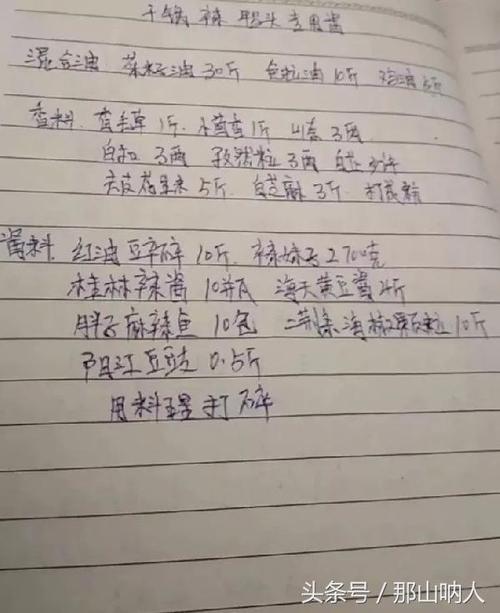 干锅辣鸭头专用酱
混合油 菜籽油30斤 色拉油10斤 鸡油5斤
香料 香毛草1斤 小茴香1斤 山奈3两
白扣3两 孜然粒3两 白芷3两
去皮花生米5斤 白芝麻3斤 打成粉
酱料 红油豆瓣碎10斤 辣妹子2700克
桂林辣酱10瓶 海天黄豆酱4斤
胖子麻辣鱼10包 二荆条海椒粒10斤
阳江豆豉0.5斤
用料理打碎
头条号 / 那山呐人